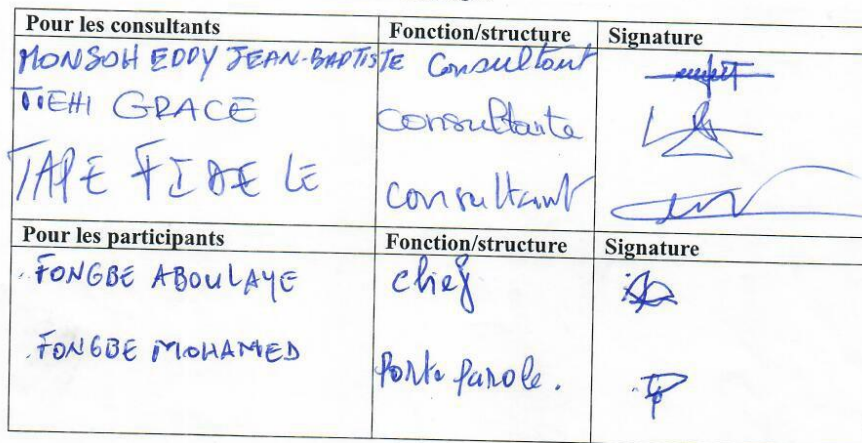 Pour les consultants Fonction/structure Signature
MONSOH EDDY JEAN-BAPTISTE Consultant
TIEHI GRACE consultante
TAPE FIDELE consultant
Pour les participants Fonction/structure Signature
FONGBE ABOULAYE chef
FONGBE MOHAMED Porte parole.